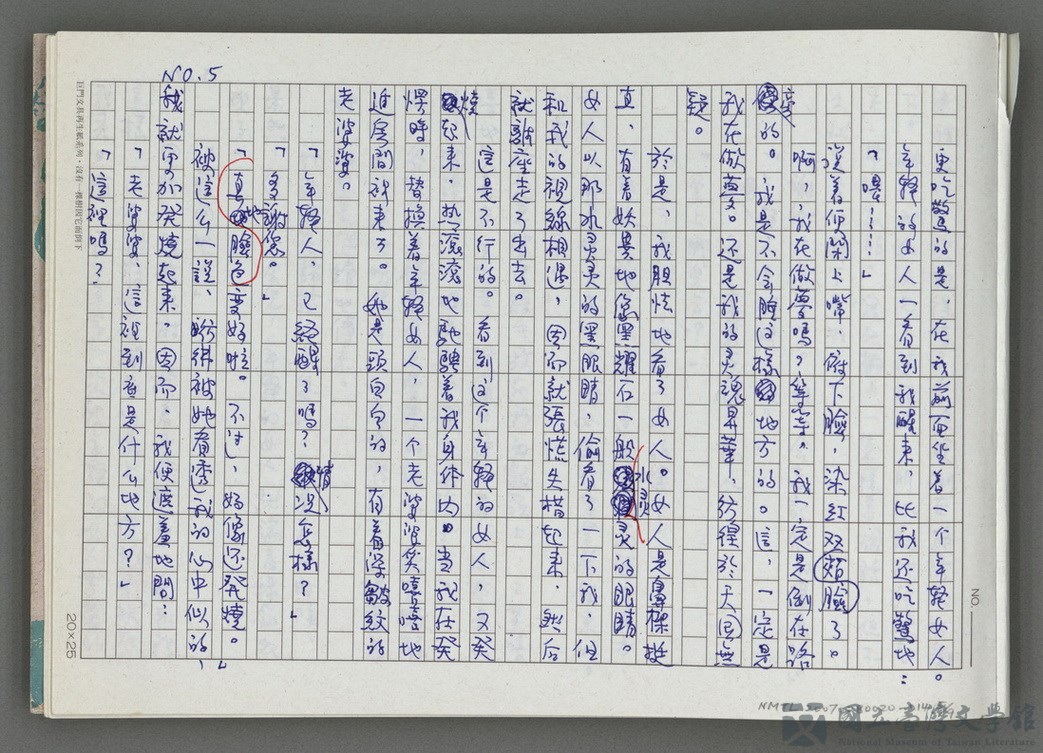 NO. 5
更吃驚的是，在我前面坐着一个年輕女人。
年輕的女人一看到我醒来，比我还吃驚地：
「喂……」
说着便閉上嘴，俯下臉，染紅双頰臉了。
啊，我在做夢嗎？等等，我一定是倒在路
旁的。我是不会睡这樣地方的。這，一定是
我在做夢。还是我的灵魂昇華，彷徨於天国無
疑。
於是，我胆怯地看了女人。女人是鼻樑挺
直，有着妖異地像黑耀石一般水灵灵的眼睛。
女人以那水灵灵的黑眼睛，偷看了一下我，但
和我的視線相遇，因而就張慌失措起来，然后
就離座走了出去。
這是不行的。看到这个年輕的女人，又発
燒起来，熱滾滾地馳騁着我身体内。当我在発
愣時，替換着年輕女人，一个老婆婆笑嘻嘻地
進房間就来了。她是頭白白的，有着深皺紋的
老婆婆。
「年輕人，已經醒了嗎？情況怎樣？」
「多謝您。」
「真地臉色変好啦。不过，好像还発燒。」
被這么一說，彷彿被她看透我的心中似的，
我就更加発燒起来，因而，我便遮羞地問：
「老婆婆，這裡到底是什么地方？」
「這裡嗎？
NO.
20×25
巨門文具再生紙系列・沒有一棵樹因它而倒下
國立臺灣文學館
National Museum of Taiwan Literature